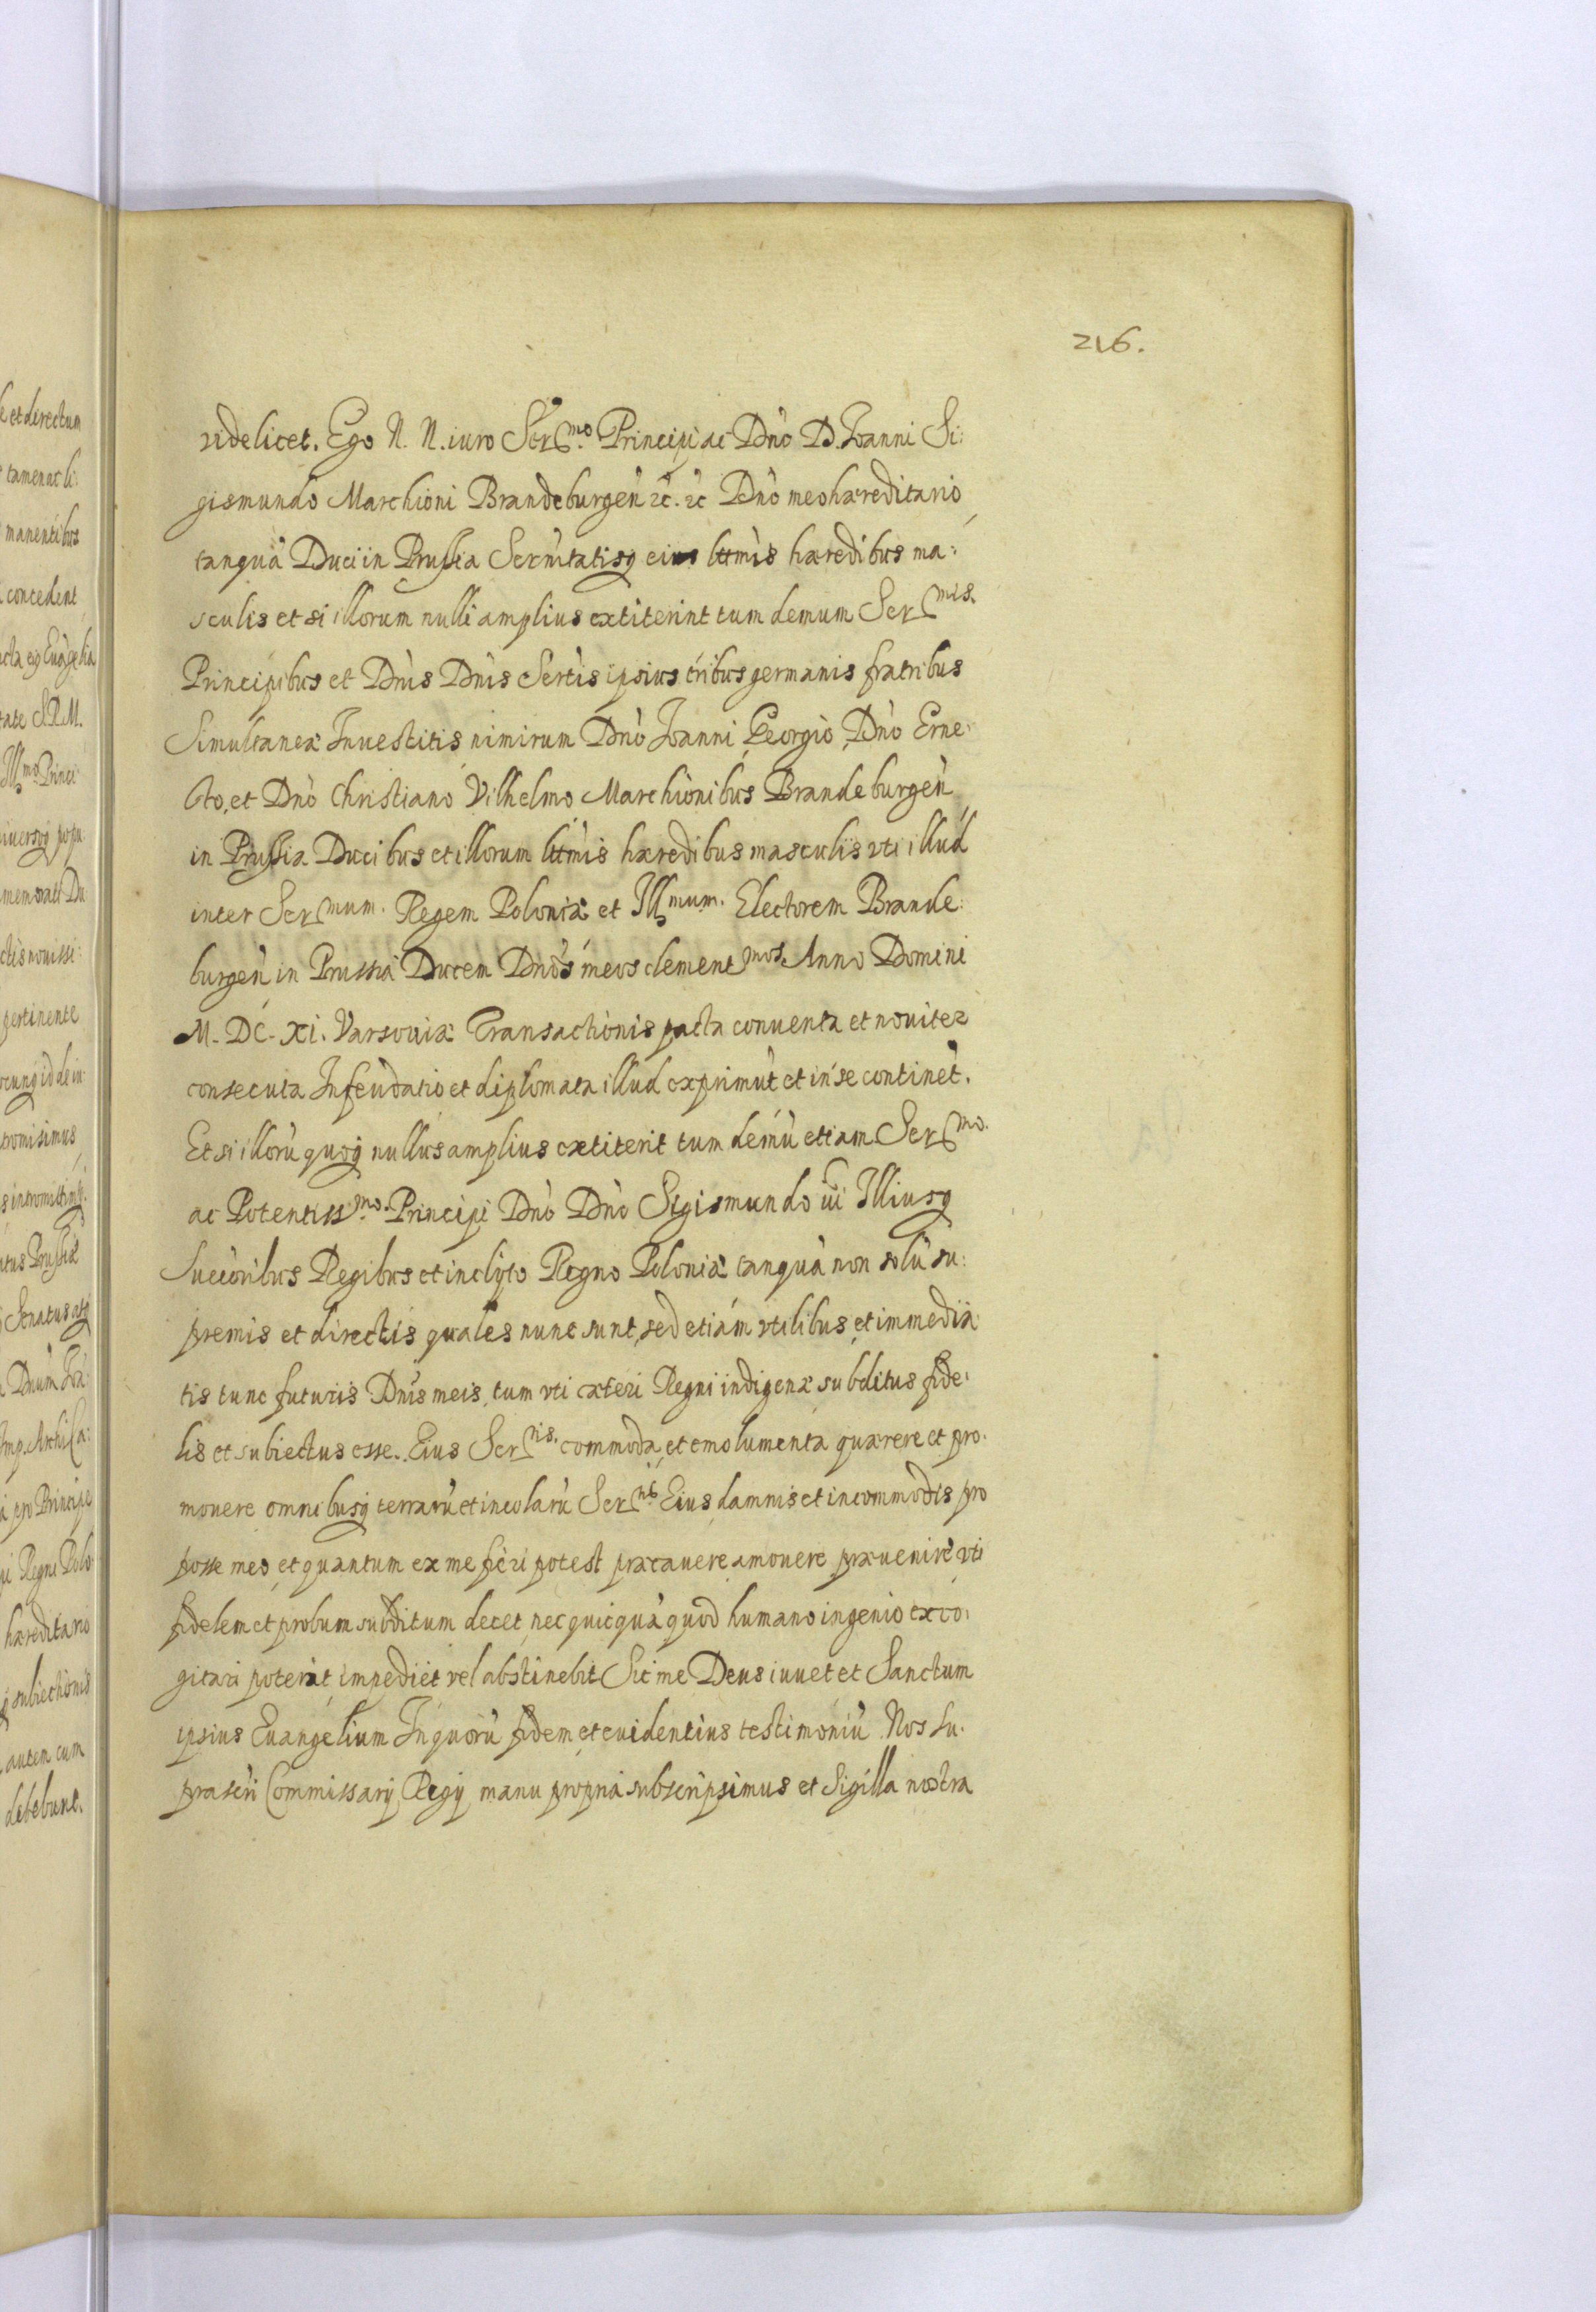 216.
videlicet. Ego N. N. iuro Ser^mo. Principi ac Dno D. Joanni Si:
gismundo Marchioni Brandeburgen ꝛc. ꝛc Dno meo hæreditario
tanquā Duci in Prussia Sernitatisq eius lttmis hæredibus ma:
sculis et si illorum nulli amplius extiterint tum demum Ser^mis.
Principibus et Dnis Dnis Sertis ipsius tribus germanis fratribus
Simultaneæ Inuestitis nimirum Dno Joanni Georgio Dno Erne:
sto, et Dno Christiano Vilhelmo Marchionibus Brandeburgen
in Prussia Ducibus et illorum lttmis hæredibus masculis vti illud
inter Ser^mum. Regem Poloniæ et Ill^mum. Electorem Brande:
burgen in Prussia Ducem Dnos meos clement^mos. Anno Domini
M. DC. XI. Varsouiæ Transactionis pacta conuenta et nouiter
consecuta Infeudatio et diplomata illud exprimūt et in se continēt.
Et si illorū quoq nullus amplius extiterit tum demū etiam Ser^mo.
ac Potentiss^mo. Principi Dno Dno Sigismundo iii Illiusq
Succoribus Regibus et inclyto Regno Poloniæ tanquā non solū su:
premis et directis quales nunc sunt, sed etiam vtilibus et immedia:
tis tunc futuris Dnis meis, tum vti cæteri Regni indigenæ subditus fide:
lis et subiectus esse. Eius Ser^nis. commoda et emolumenta quærere et pro:
mouere omnibusq terrarū et incolarū Ser^nis Eius damnis et incommodis pro
posse meo et quantum ex me fieri potest præcauere amouere præuenire vti
fidelem et probum subditum decet nec quicquā quod humano ingenio exco:
gitari poterit impediet vel abstinebit Sic me Deus iuuet et Sanctum
ipsius Euangelium In quorū fidem et euidentius testimoniū Nos su:
prascri Commissarij Regij manu propria subscripsimus et Sigilla nostra